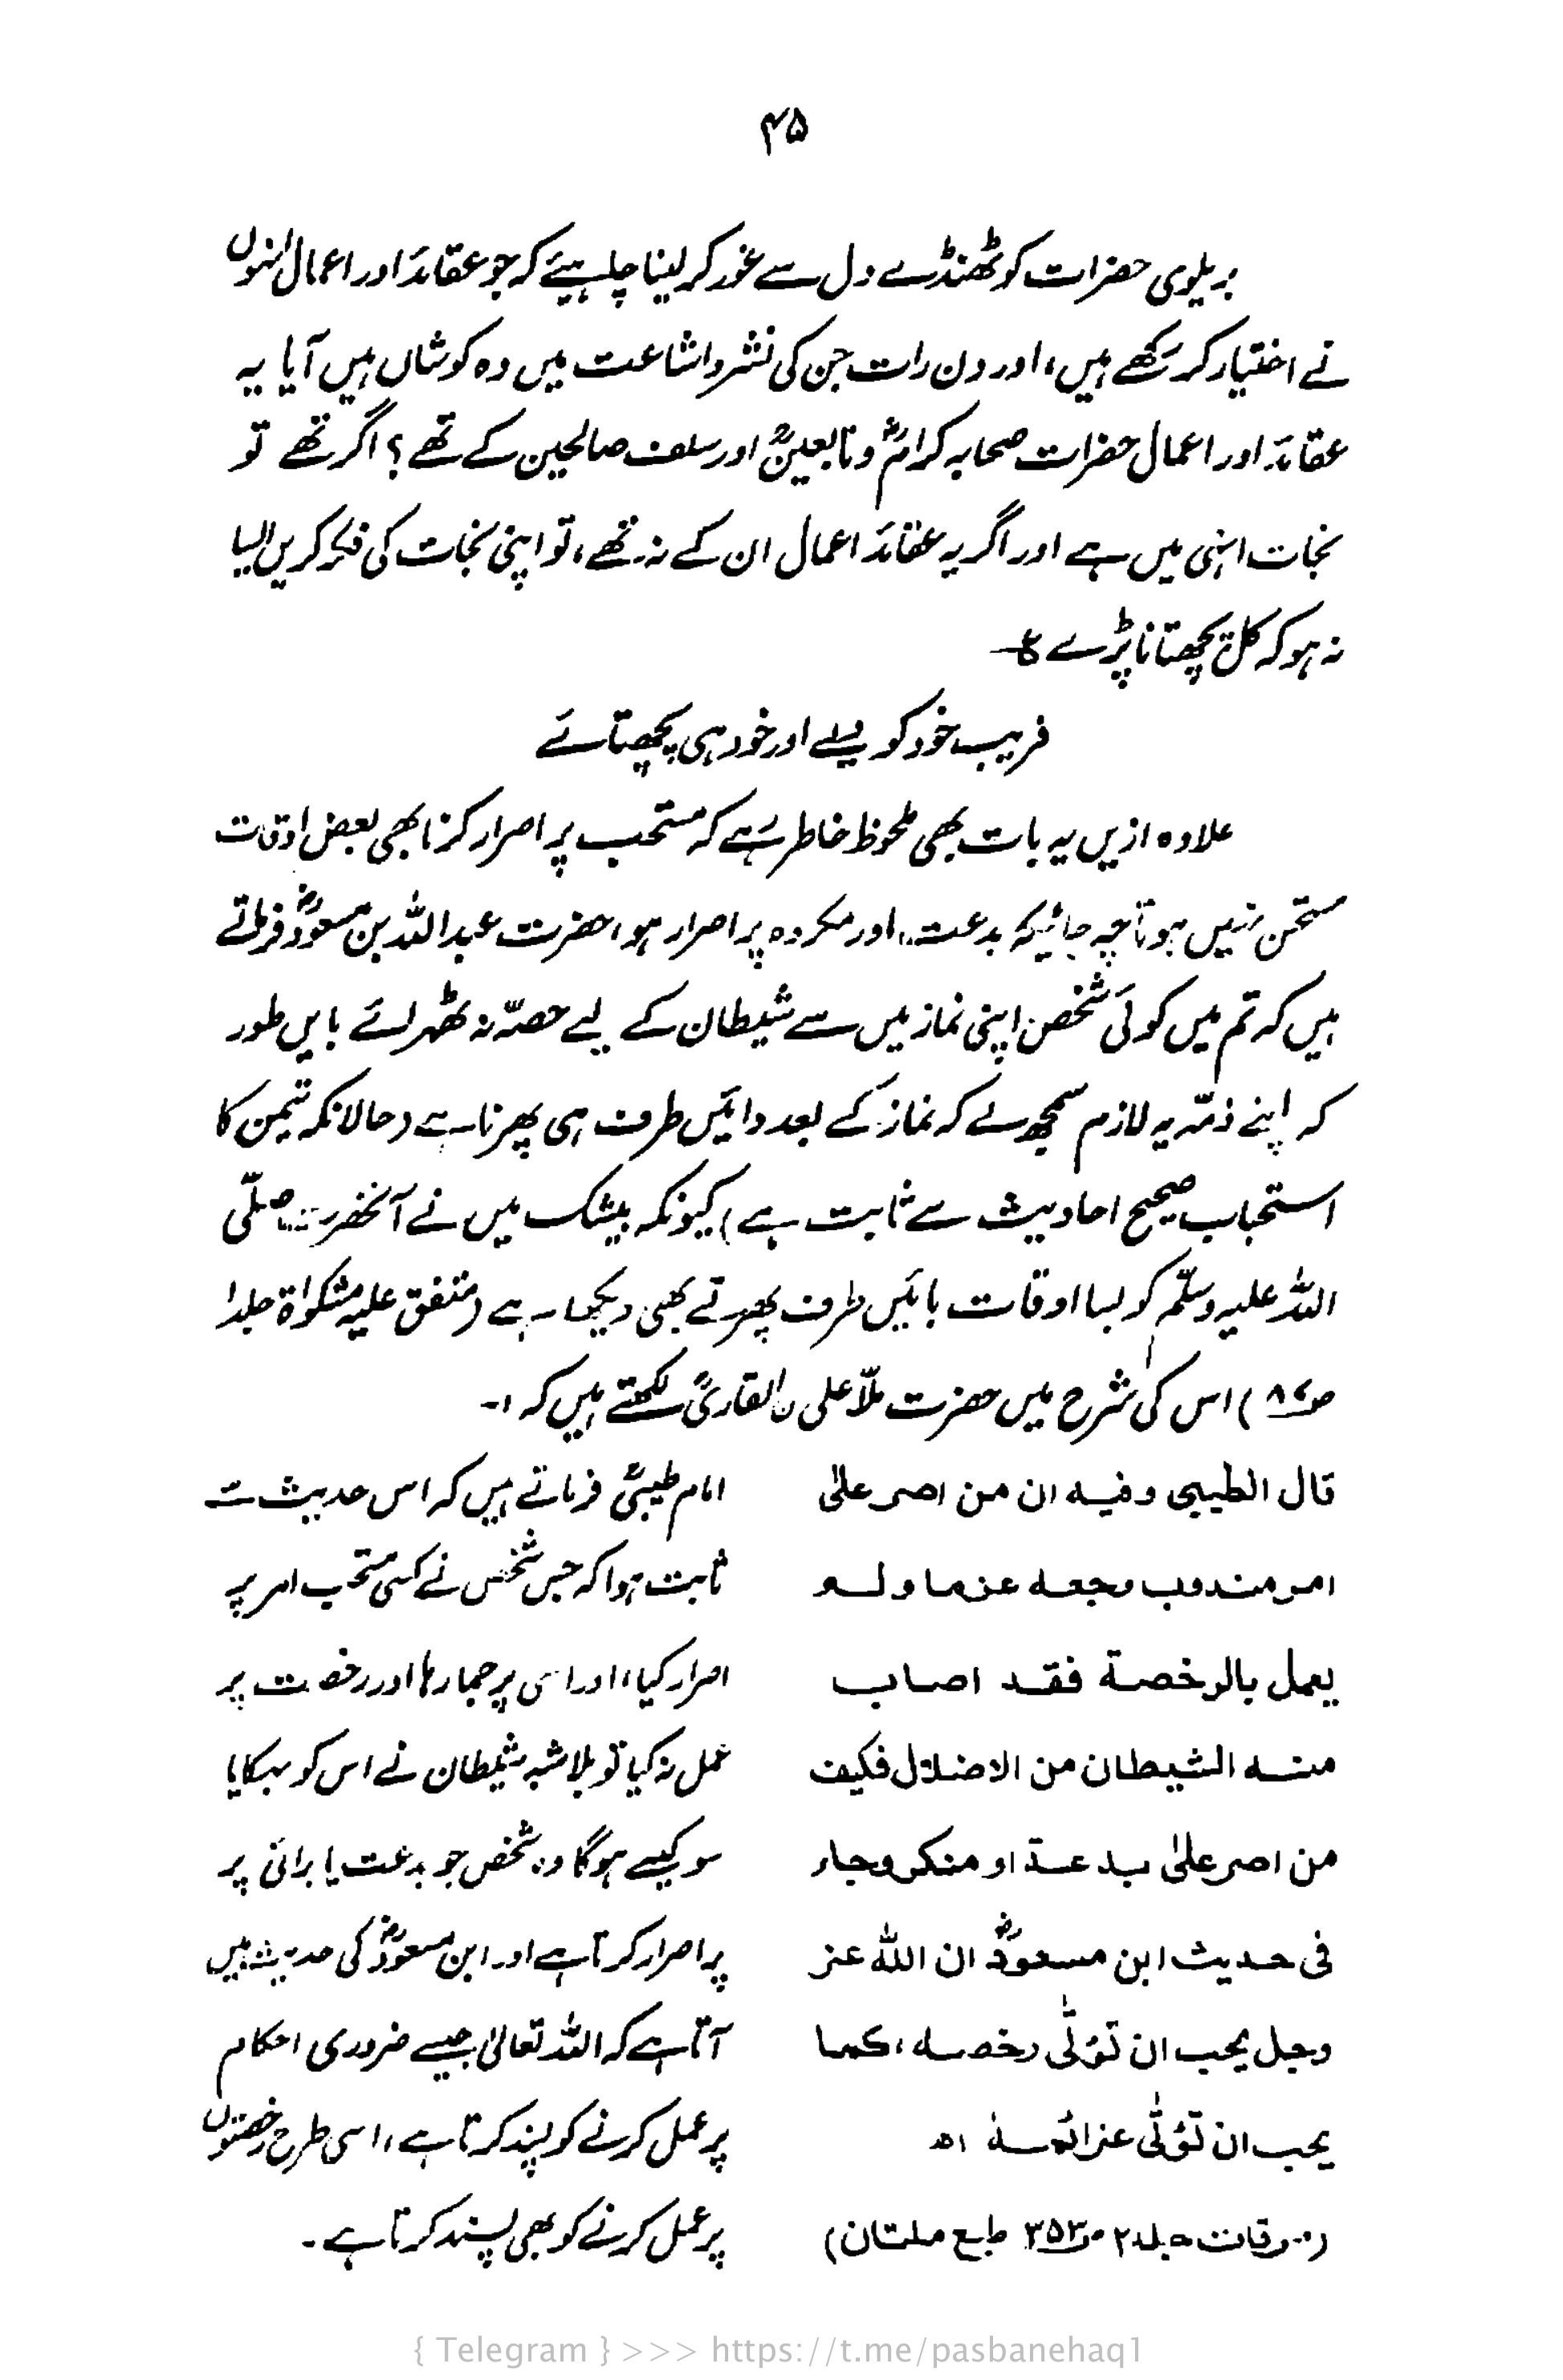 ۴۵
بریلوی حضرات کو ٹھنڈے دل سے غور کر لینا چاہیئے کہ جو عقائد اور اعمال انہوں
نے اختیار کر رکھے ہیں، اور دن رات جن کی نشر و اشاعت میں وہ کوشاں ہیں آیا یہ
عقائد اور اعمال حضرات صحابہ کرامؓ و تابعینؒ اور سلف صالحین کے تھے؟ اگر تھے تو
نجات انہی میں ہے اور اگر یہ عقائد اعمال ان کے نہ تھے، تو اپنی نجات کی فکر کریں ایسا
نہ ہو کہ کل پچھتانا پڑے ع
فریب خود کو دیے اور خود ہی پچھتائے
علاوہ ازیں یہ بات بھی ملحوظ خاطر رہے کہ مستحب پر اصرار کرنا بھی بعض اوقات
مستحسن نہیں ہوتا چہ جائیکہ بدعت، اور مکروہ پر اصرار ہو، حضرت عبداللہ بن مسعودؓ فرماتے
ہیں کہ تم میں کوئی شخص اپنی نماز میں سے شیطان کے لیے حصّہ نہ ٹھہرائے بایں طور
کہ اپنے ذمّہ یہ لازم سمجھ لے کہ نماز کے بعد دائیں طرف ہی پھرنا ہے (حالانکہ تیمن کا
استحباب صحیح احادیث سے ثابت ہے) کیونکہ بیشک میں نے آنحضرت صلّی
اللہ علیہ وسلّم کو بسا اوقات بائیں طرف پھرتے بھی دیکھا ہے (متفق علیہ مشکواة جلد۱
ص۸۷) اس کی شرح میں حضرت ملّا علی ن القاریؒ لکھتے ہیں کہ :-
قال الطیبی وفیه ان من اصر علیٰ
امر مندوب وجعله عزما ولم
یعمل بالرخصة فقد اصاب
منه الشیطان من الاضلال فکیف
من اصر علیٰ بدعة او منکر وجاء
فی حدیث ابن مسعودؓ ان اللہ عز
وجل یحب ان تؤتٰی رخصه، کما
یحب ان تؤتٰی عزائمهٗ اھ
(مرقات جلد۲ ص۳۵۳ طبع ملتان)
امام طیبیؒ فرماتے ہیں کہ اس حدیث سے
ثابت ہوا کہ جس شخص نے کسی مستحب امر پر
اصرار کیا، اور اسی پر جما رہا اور رخصت پر
عمل نہ کیا تو بلاشبہ شیطان نے اس کو بہکایا
سو کیسے ہوگا وہ شخص جو بدعت یا برائی پر
پر اصرار کرتا ہے اور ابن مسعودؓ کی حدیث میں
آتا ہے کہ اللہ تعالیٰ جیسے ضروری احکام
پر عمل کرنے کو پسند کرتا ہے، اسی طرح رخصتوں
پر عمل کرنے کو بھی پسند کرتا ہے۔
{ Telegram } >>> https://t.me/pasbanehaq1